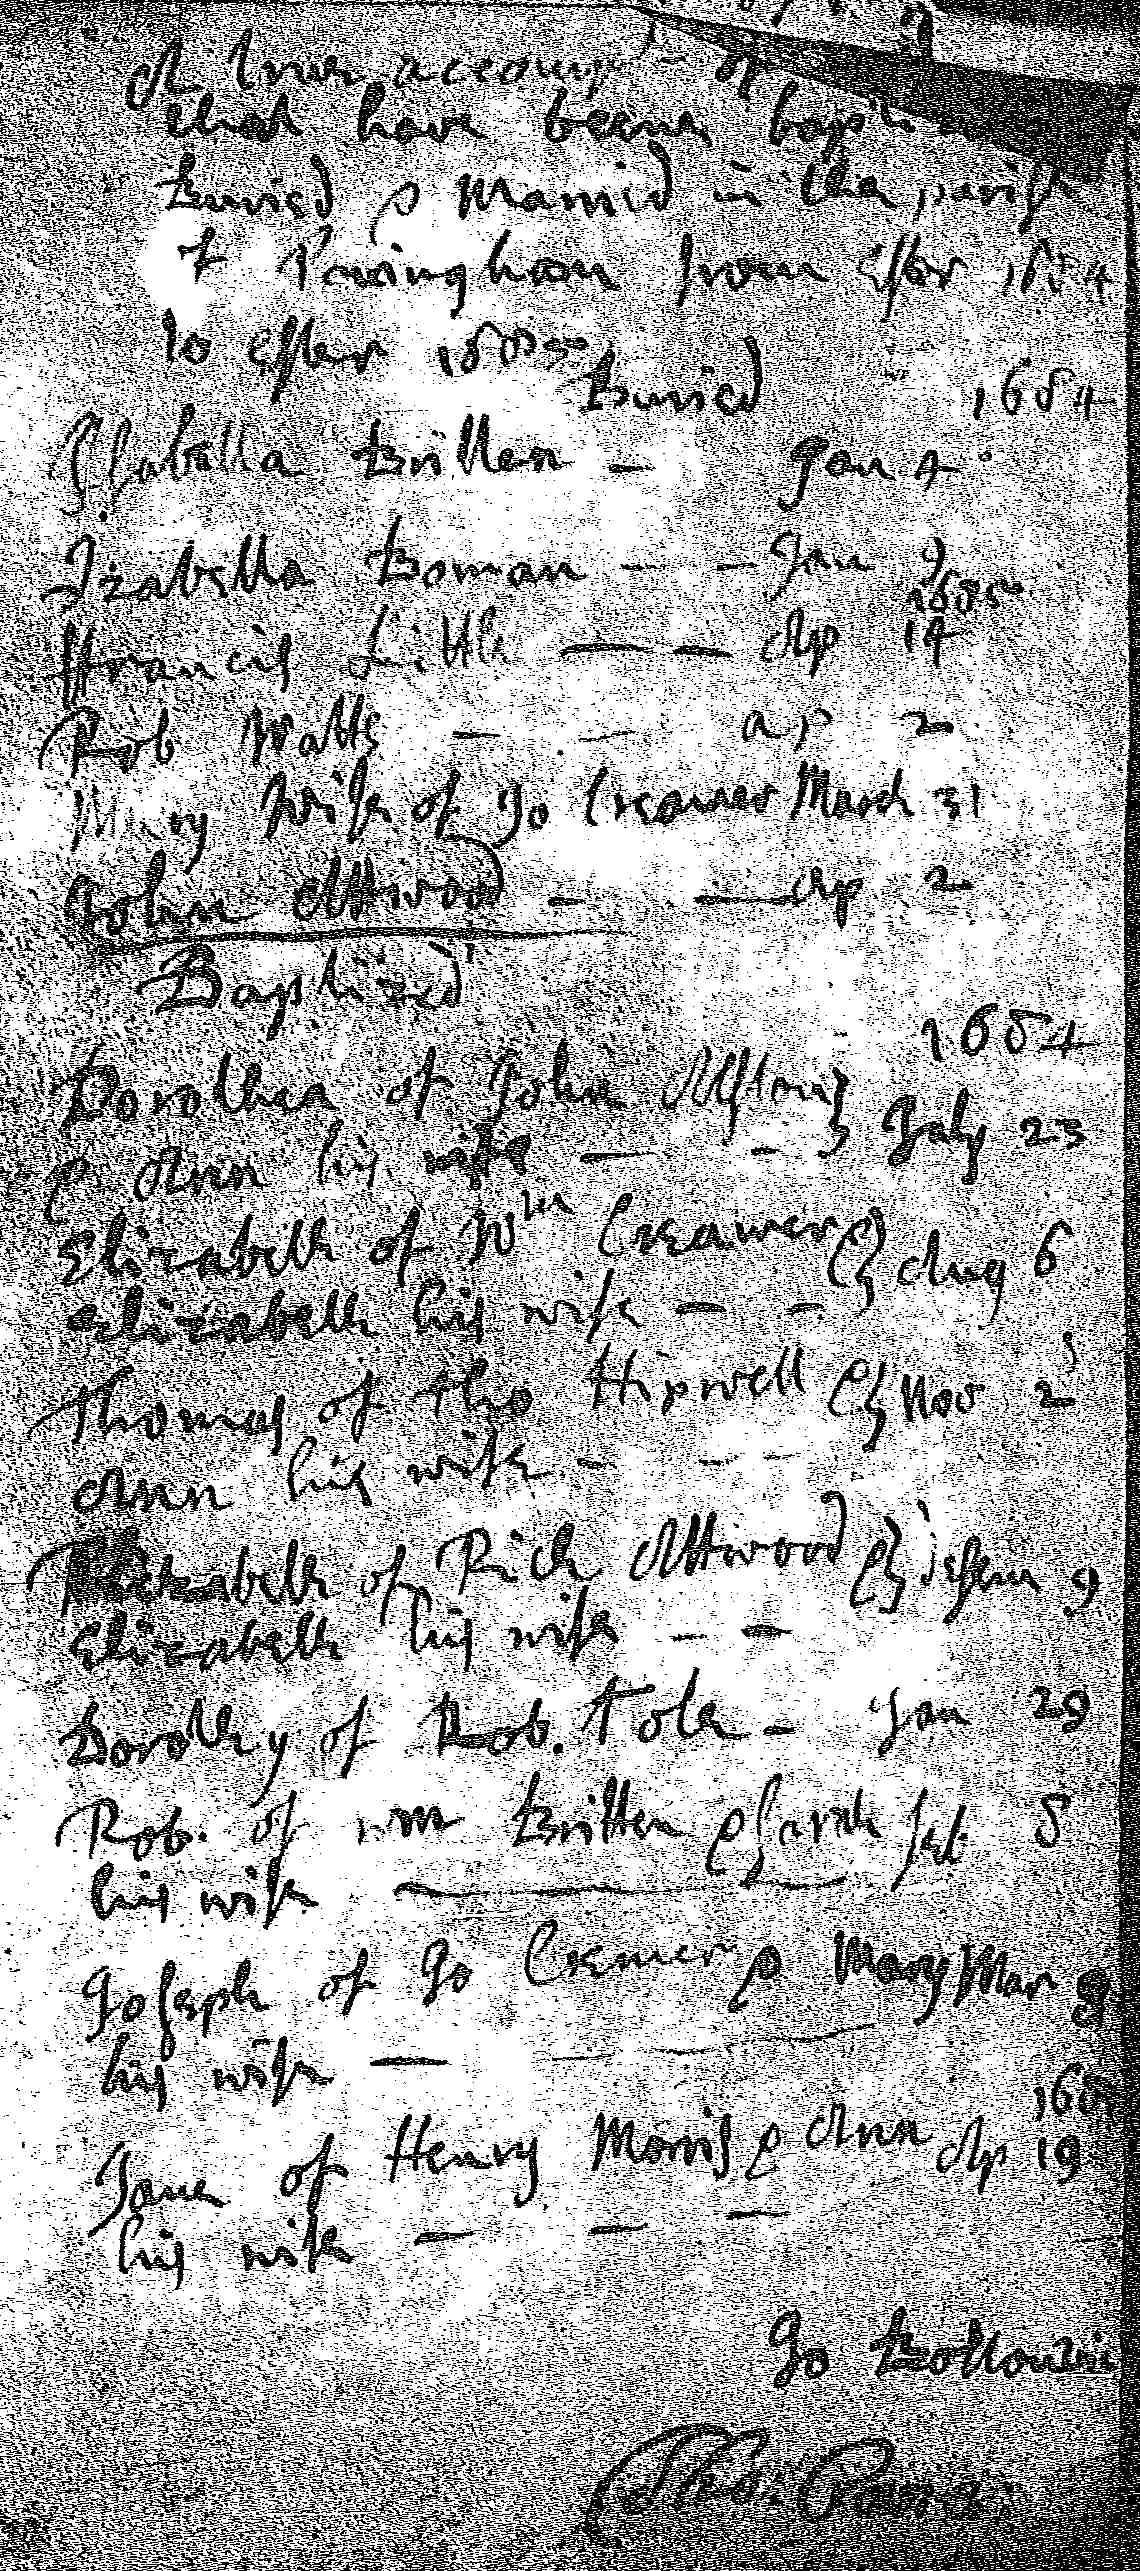 A true account of
that have beene bapt
Buried & Married in the parish
of Covingham from Est 1684
to Ester 1685
Buried 1684
Isabella Britten - Jan 4
Izabella Boman - - Jan 9
1685
Francis Little - - Ap 14
Rob Watts - - ap 2
Mary wife of Jo Creamer March 31
John Attwood - - Ap 2
Baptized
1684
Dorothea of John Allson
& Ann his wife - - July 23
Elizabeth of Wm Creamer &
Elizabeth his wife - - Aug 6
Thomas of Tho Hipwell & Nov 2
Ann his wife - - -
Elizabeth of Rich Attwood & 9
Elizabeth his wife - -
Dorothy of Rob. Tole - Jan 29
Rob. of wm Britten & Sarah feb 8
his wife
Joseph of Jo Cremer & Mary Mar
his wife - - - -
168
Jane of Henry Morris & Ann Ap 19
his wife - - -
Jo
Tho: